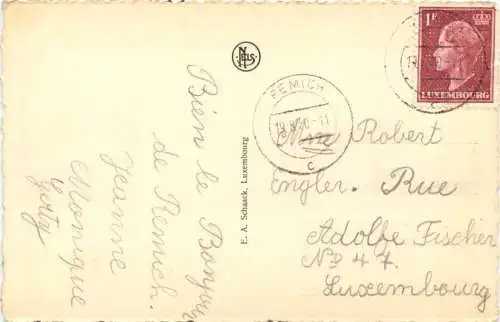 Bien le Bonjour
de Remich.
Jeanne
Monique
NELS
E. A. Schaack, Luxembourg
REMICH
C
1F
LUXEMBOURG
C
Robert
Engler. Rue
Adolfe Fischer
No 47.
Luxembourg